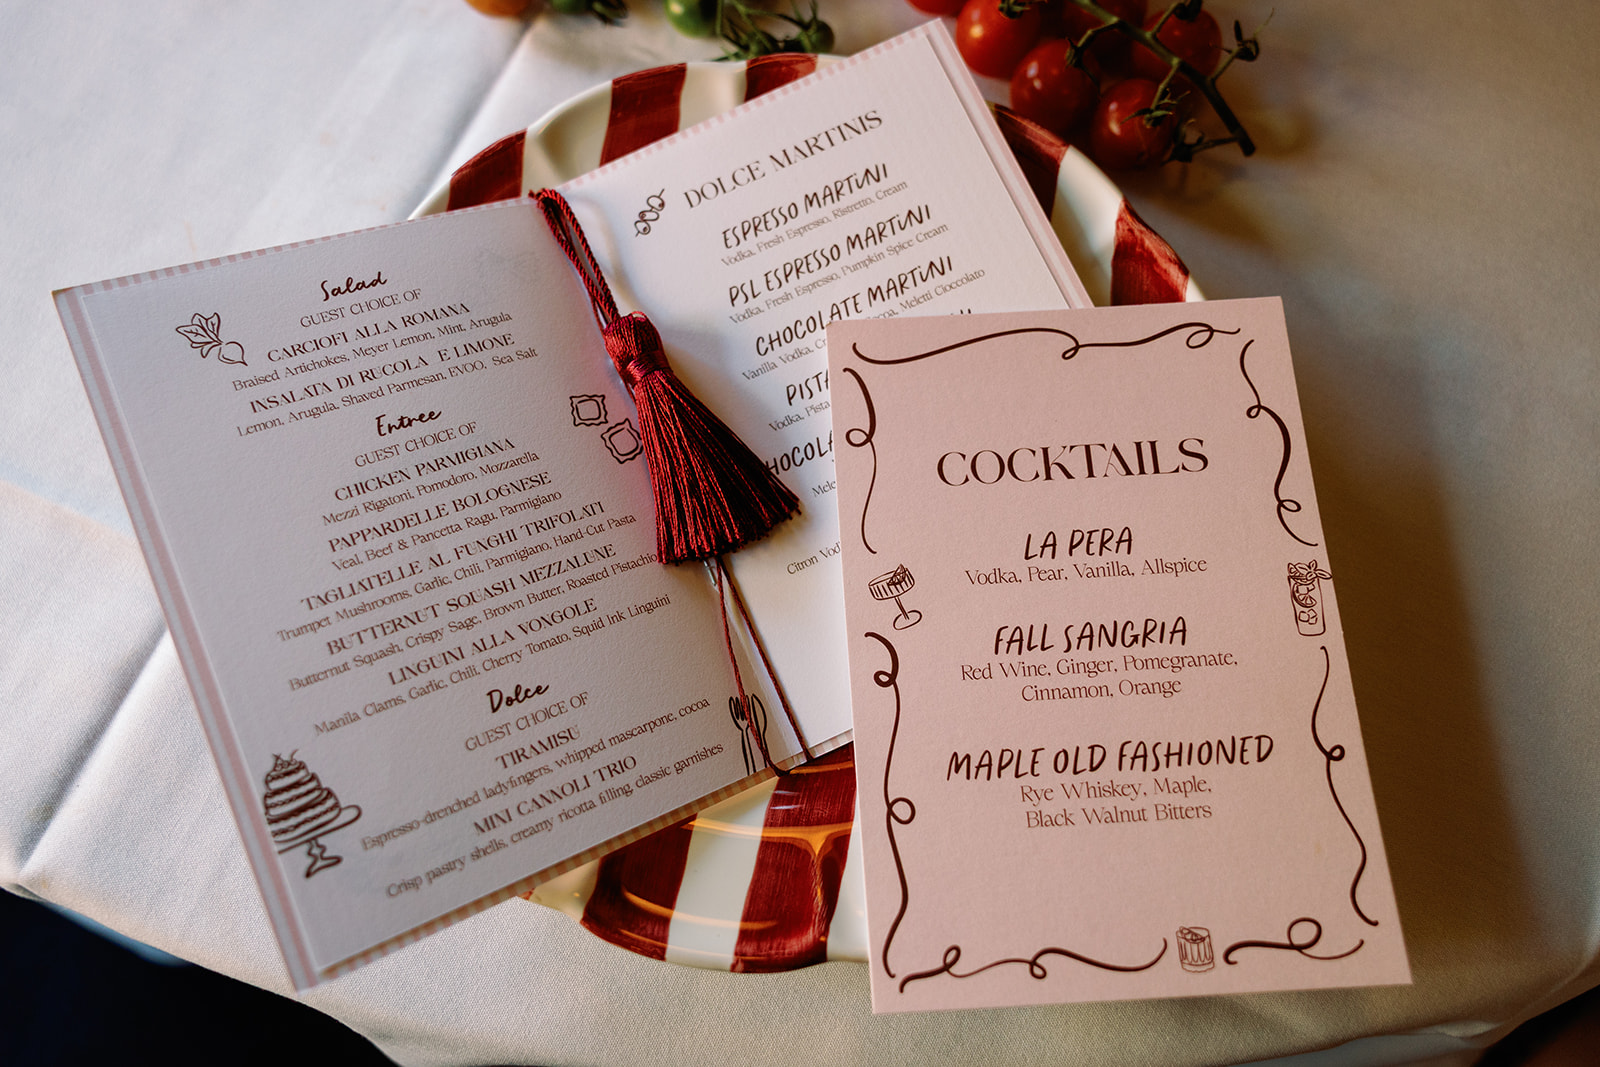 Salad
GUEST CHOICE OF
CARCIOFI ALLA ROMANA
Braised Artichokes, Meyer Lemon, Mint, Arugula
INSALATA DI RUCOLA E LIMONE
Lemon, Arugula, Shaved Parmesan, EVOO, Sea Salt
Entree
GUEST CHOICE OF
CHICKEN PARMIGIANA
Mezzi Rigatoni, Pomodoro, Mozzarella
PAPPARDELLE BOLOGNESE
Veal, Beef & Pancetta Ragu, Parmigiano
TAGLIATELLE AL FUNGHI TRIFOLATI
Trumpet Mushrooms, Garlic, Chili, Parmigiano, Hand-Cut Pasta
BUTTERNUT SQUASH MEZZALUNE
Butternut Squash, Crispy Sage, Brown Butter, Roasted Pistachio
LINGUINI ALLA VONGOLE
Manila Clams, Garlic, Chili, Cherry Tomato, Squid Ink Linguini
Dolce
GUEST CHOICE OF
TIRAMISU
Espresso-drenched ladyfingers, whipped mascarpone, cocoa
MINI CANNOLI TRIO
Crisp pastry shells, creamy ricotta filling, classic garnishes
DOLCE MARTINIS
ESPRESSO MARTINI
Vodka, Fresh Espresso, Ristretto, Cream
PSL ESPRESSO MARTINI
Vodka, Fresh Espresso, Pumpkin Spice Cream
CHOCOLATE MARTINI
Vanilla Vodka, Meletti Cioccolato
Vodka,
Citron
COCKTAILS
LA PERA
Vodka, Pear, Vanilla, Allspice
FALL SANGRIA
Red Wine, Ginger, Pomegranate,
Cinnamon, Orange
MAPLE OLD FASHIONED
Rye Whiskey, Maple,
Black Walnut Bitters